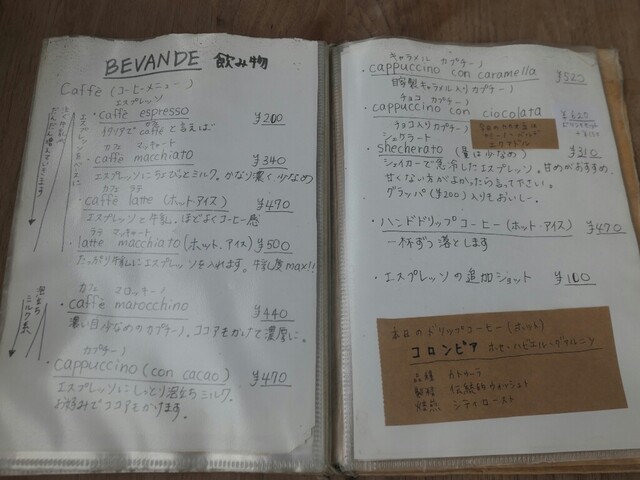 BEVANDE 飲み物
Caffè (コーヒーメニュー)
エスプレッソ
caffè espresso ¥200
イタリアでcaffèと言えば
カフェ
カフェ マッキャート
caffè macchiato ¥340
エスプレッソにちょびっとミルク。かなり濃く、少なめ
カフェ ラテ
caffè latte (ホット・アイス) ¥470
エスプレッソと牛乳。ほどよくコーヒー感
ラテ マッキャート
latte macchiato (ホット、アイス) ¥500
たっぷり牛乳にエスプレッソを入れます。牛乳度max!!
カフェ マロッキーノ
caffè marocchino ¥440
濃い目少なめのカプチーノ。ココアもかけて濃厚に。
カプチーノ
cappuccino (con cacao) ¥470
エスプレッソにしっとり泡立ちミルク。
お好みでココアもかけます。
エスプレッソをベースに
泡立ち
ミルク系
キャラメル カプチーノ
・cappuccino con caramella ¥520
自家製キャラメル入りカプチーノ
チョコ カプチーノ
・cappuccino con ciocolata ¥620
チョコ入りカプチーノ
シェケラート
・shecherato (量は少なめ) ¥310
シェイカーで急冷したエスプレッソ。甘めがおすすめ、
甘くない方がよかったら言って下さい。
グラッパ(¥200)入りもおいしー。
・ハンドドリップコーヒー(ホット・アイス) ¥470
一杯ずつ落とします
・エスプレッソの追加ショット ¥100
本日のドリップコーヒー(ホット)
コロンビア ホセ・ハビエル・
品種 カトゥーラ
製整 伝統的ウォッシュト
焙煎 シティロースト